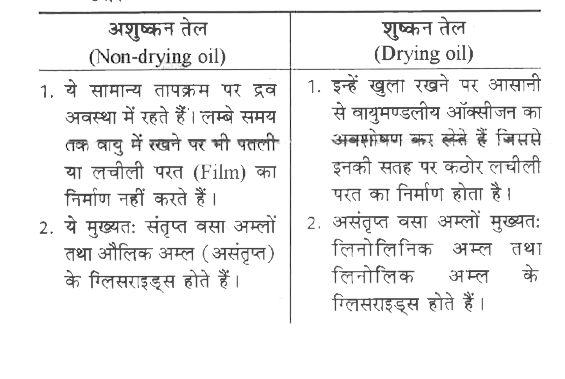 अशुष्कन तेल
(Non-drying oil)
1. ये सामान्य तापक्रम पर द्रव
अवस्था में रहते हैं। लम्बे समय
तक वायु में रखने पर भी पतली
या लचीली परत (Film) का
निर्माण नहीं करते हैं।
2. ये मुख्यतः संतृप्त वसा अम्लों
तथा औलिक अम्ल (असंतृप्त)
के ग्लिसराइड्स होते हैं।
शुष्कन तेल
(Drying oil)
1. इन्हें खुला रखने पर आसानी
से वायुमण्डलीय ऑक्सीजन का
अवशोषण कर लेते हैं जिससे
इनकी सतह पर कठोर लचीली
परत का निर्माण होता है।
2. असंतृप्त वसा अम्लों मुख्यतः
लिनोलिनिक अम्ल तथा
लिनोलिक अम्ल के
ग्लिसराइड्स होते हैं।